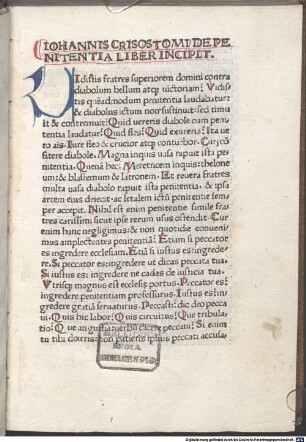 IOHANNIS CRISOSTOMI DE PE
NITENTIA LIBER INCIPIT.
VIdistis fratres superiorem domini contra
diabolum bellum atqꝫ uictoriam? Vidi
stis quẽadmodum penitentia laudabatur:
& diabolus ictum nõ sustinuit: sed timu
it & contremuit? Quid uereris diabole cum peni
tentia laudatur? Quid fles? Quid exureris? Ita ue
ro ais. Iure fleo & crucior atqꝫ conturbor. Cur cõ
fitere diabole. Magna inquis uasa rapuit ista peni
tentia. Quenã hec? Meretricem inquis: thelone
um: & blasfemum & latronem. Et reuera fratres
multa uasa diabolo rapuit ista penitentia. & ipsa
artem eius deiecit: ac letalem ictũ penitentie sem
per accepit. Nihil est enim penitentie simile fra
tres carissimi: sicut ipse rerum usus ostendit. Cur
enim hanc negligimus: & non quotidie conueni
mus amplectentes penitentiã? Etiam si peccator
es ingredere ecclesiam. Etiã si iustus es: ingrede
re. Si peccator es: ingredere ut dicas peccata tua.
Si iustus es: ingredere ne cadas de iusticia tua.
Vtrisqꝫ magnus est ecclesię portus. Peccator es?
ingredere penitentiam professurus. Iustus es? in
gredere gratiã seruaturus. Peccasti? dic deo pecca
ui. Quis hic labor? Quis circuitus? Que tribula
tio? Que angustia uerbũ dicere peccaui? Si enim
tu tibi dixeris: non patieris ipsius peccati accusa
BIBLIOTHECA
REGIA
MONACENSIS